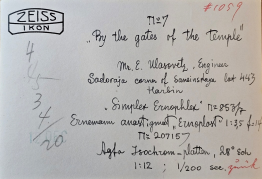 ZEISS
IKON
№7
#1059
"By the gates of the Temple"
Mr. E. Ulasovets, Engineer
Sadovaja corner of lot 443
Harbin
"Simplex Ernophlex" №
Ernemann anastigmat "Ernoplast" 1:3,5 f=14
№ 207157
Agfa Isochrom-platten, 28° Sch
1:12 ; 1/200 sec.
4
15
3
4
20